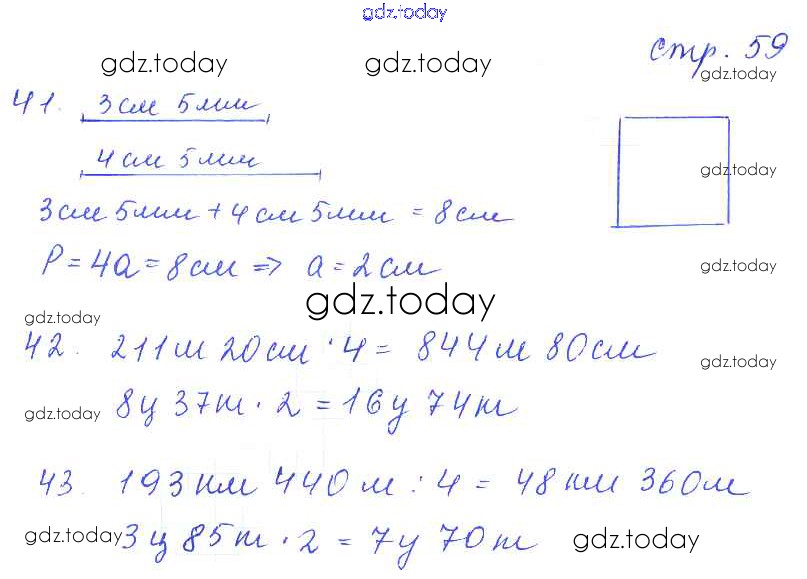 gdz.today
стр. 59
gdz.today gdz.today
gdz.today
41. 3 см 5 мм
4 см 5 мм
gdz.today
3 см 5 мм + 4 см 5 мм = 8 см
P = 4a = 8 см => a = 2 см
gdz.today
gdz.today
gdz.today
42. 211 м 20 см · 4 = 844 м 80 см
gdz.today
8 ц 37 т · 2 = 16 ц 74 т
gdz.today
43. 193 км 440 м : 4 = 48 км 360 м
gdz.today 3 ц 85 т · 2 = 7 ц 70 т gdz.today